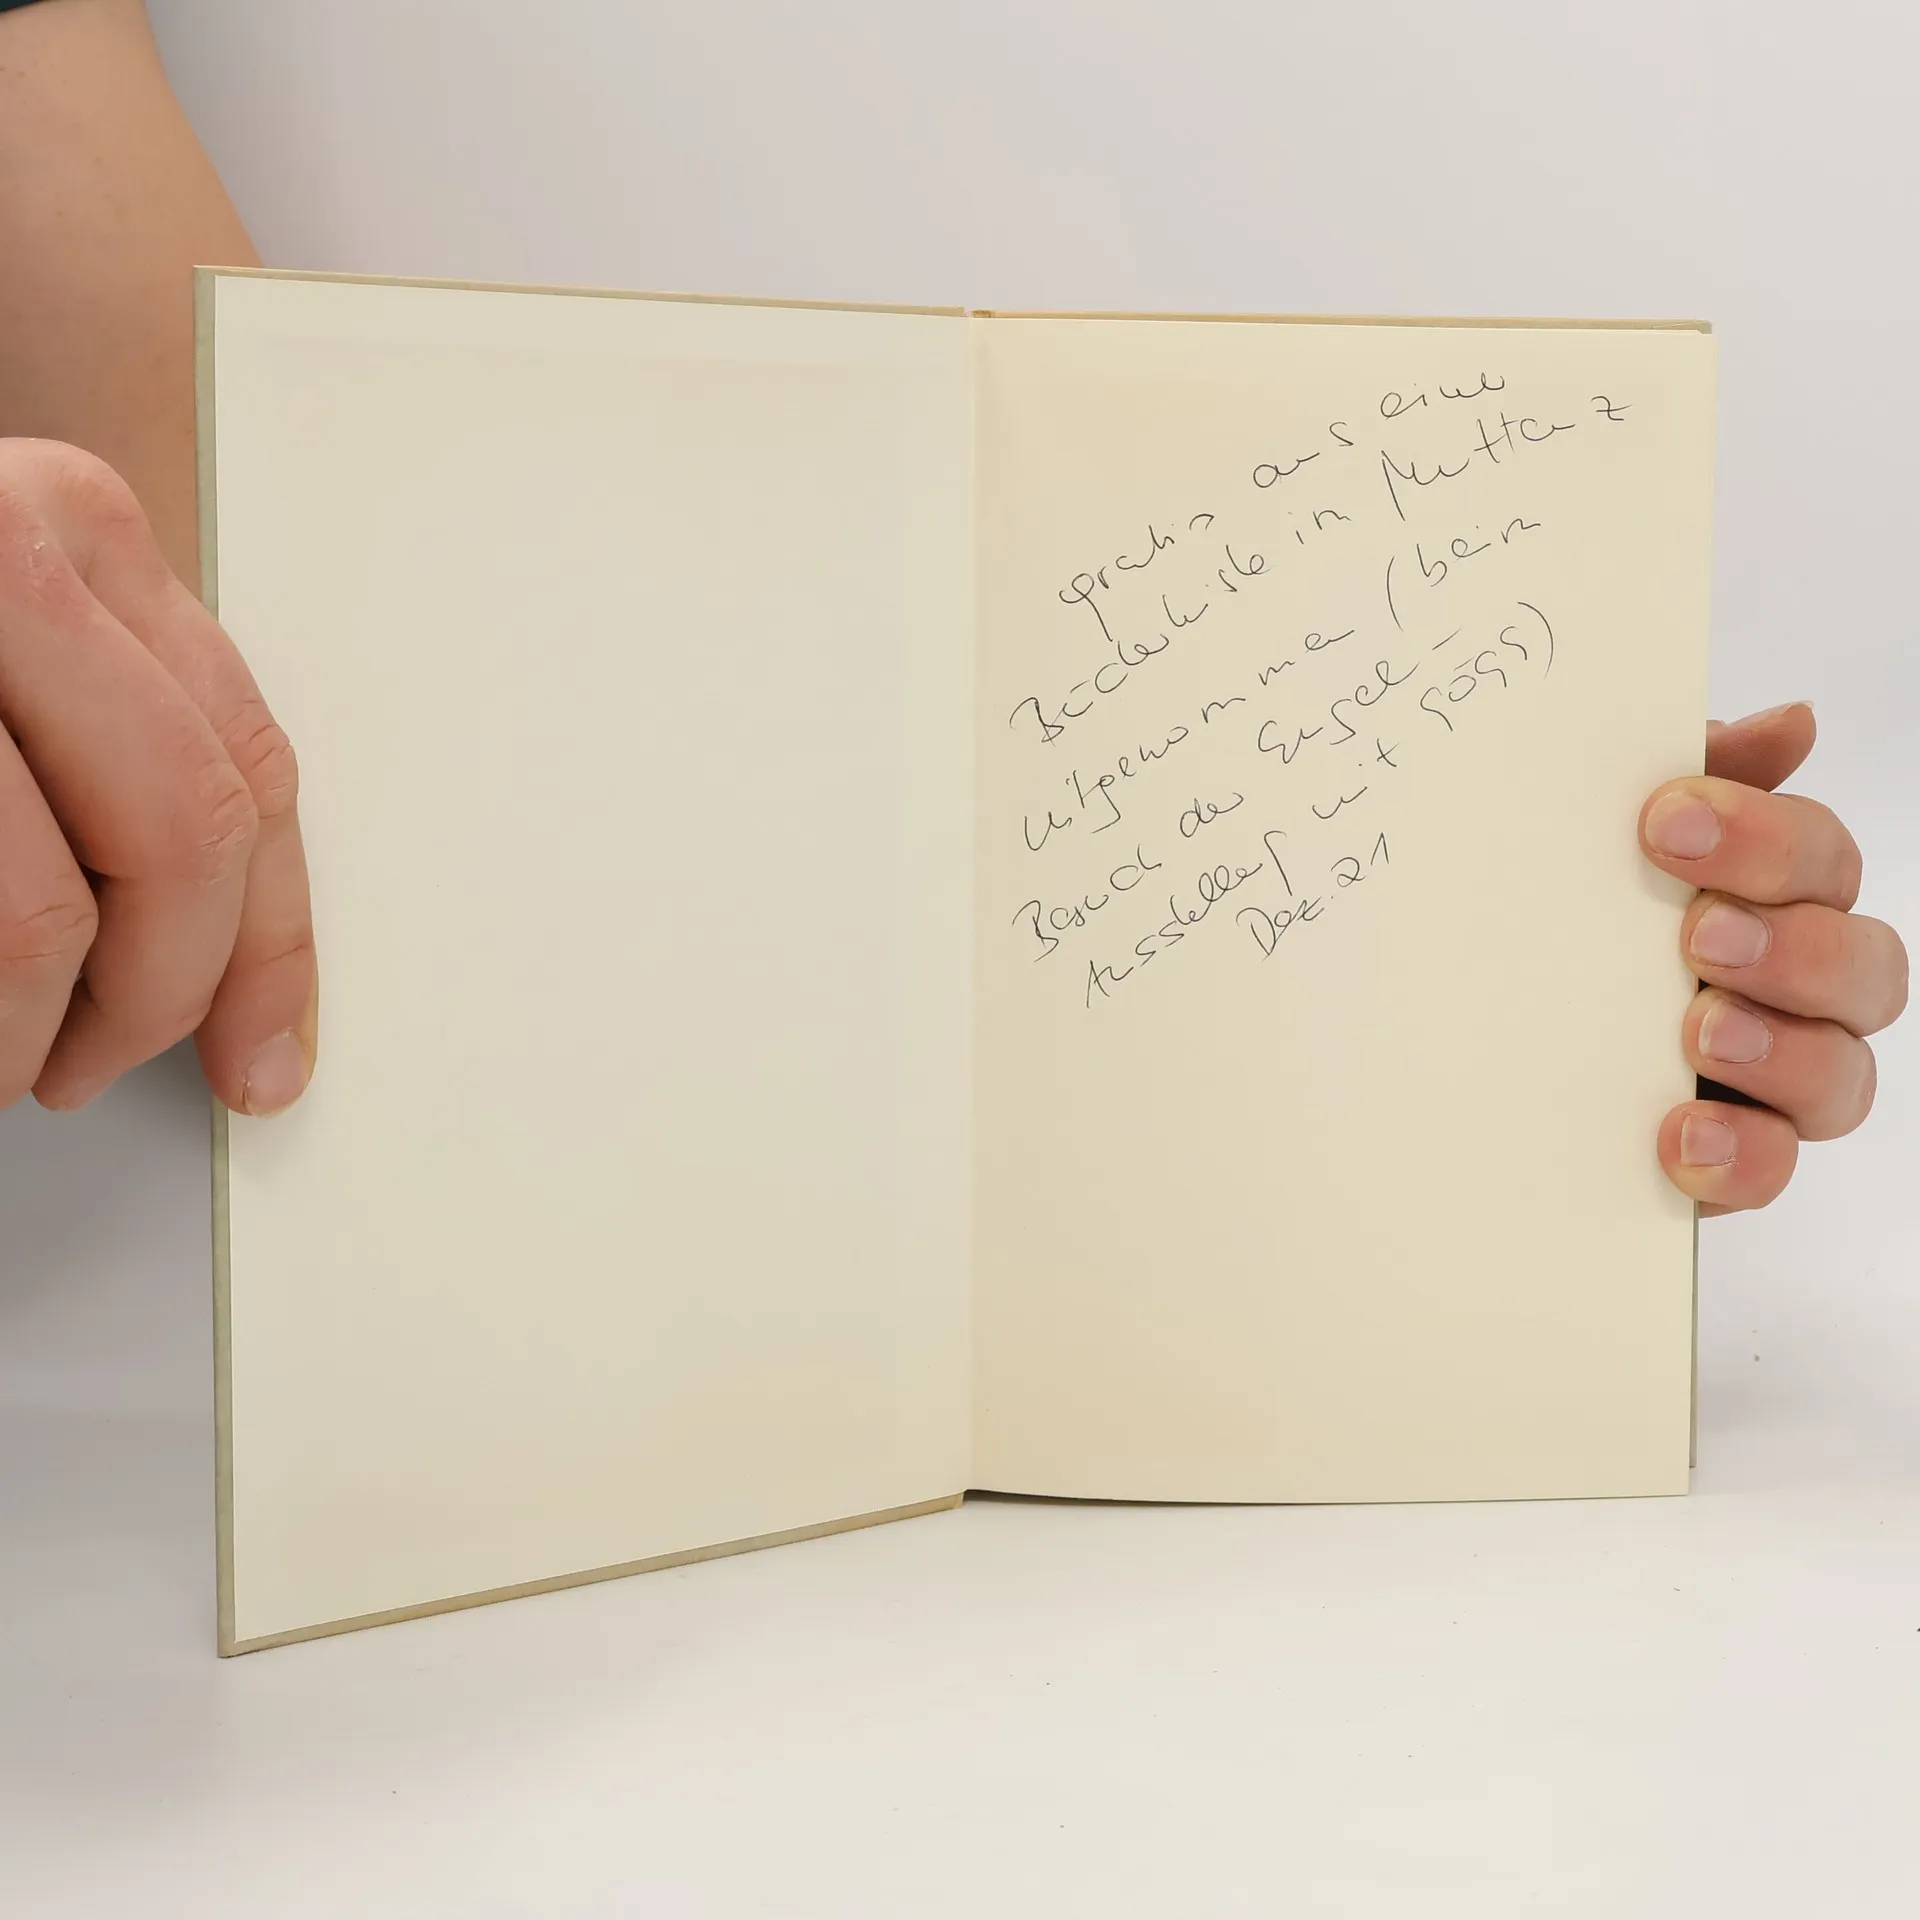 gratis aus einer
Bücherkiste in Muttenz
mitgenommen (beim
Besuch der Engel-
Ausstellung mit
Dez. 21